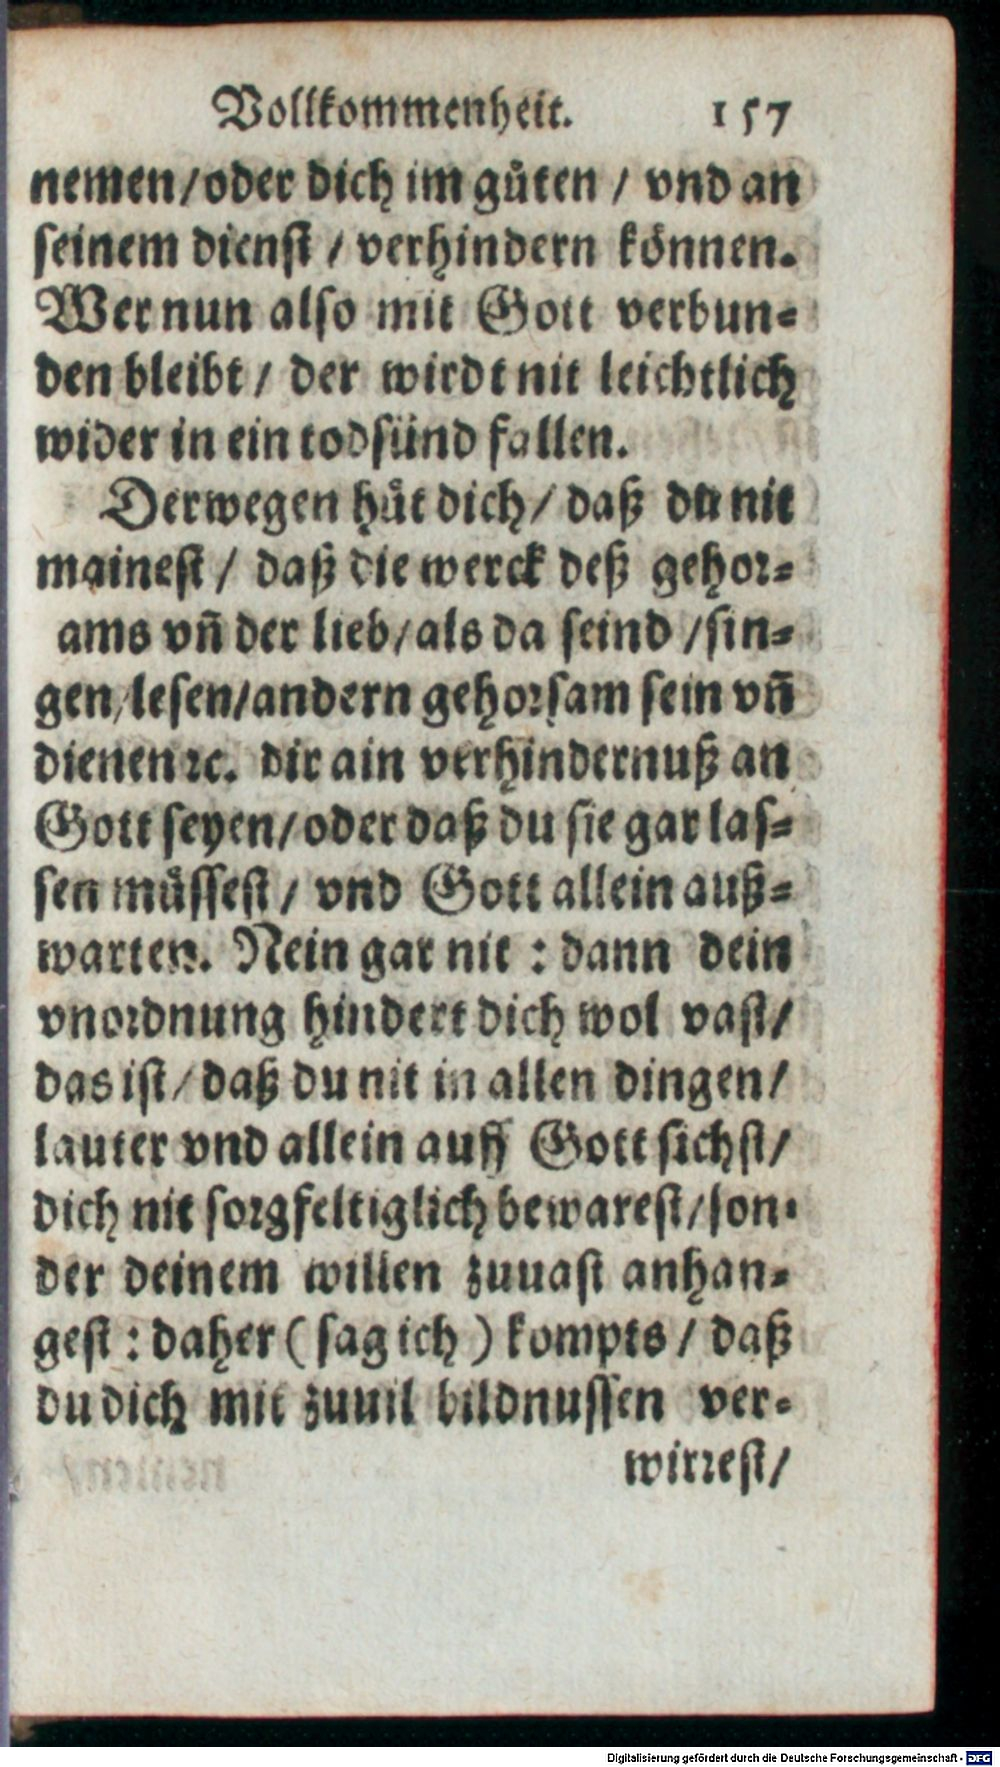 Vollkommenheit. 157
nemen/oder dich im gůten / vnd an
seinem dienst / verhindern können.
Wer nun also mit Gott verbun-
den bleibt / der wirdt nit leichtlich
wider in ein todsünd fallen.
Derwegen hůt dich / daß du nit
mainest / daß die werck deß gehor-
ams vñ der lieb/als da seind /sin-
gen/lesen/andern gehorsam sein vñ
dienen ꝛc. dir ain verhindernuß an
Gott seyen/oder daß du sie gar las-
sen můssest / vnd Gott allein auß-
warten. Nein gar nit : dann dein
vnordnung hindert dich wol vast/
das ist/daß du nit in allen dingen/
lauter vnd allein auff Gott sichst/
dich nit sorgfeltiglich bewarest/son-
der deinem willen zuuast anhan-
gest : daher ( sag ich ) kompts / daß
du dich mit zuuil bildnussen ver-
wirrest/
Digitalisierung gefördert durch die Deutsche Forschungsgemeinschaft - DFG